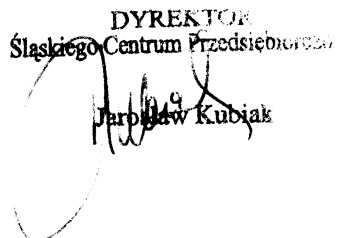 DYREKTOR
Śląskiego Centrum Przedsiębiorczo
Jarosław Kubiak